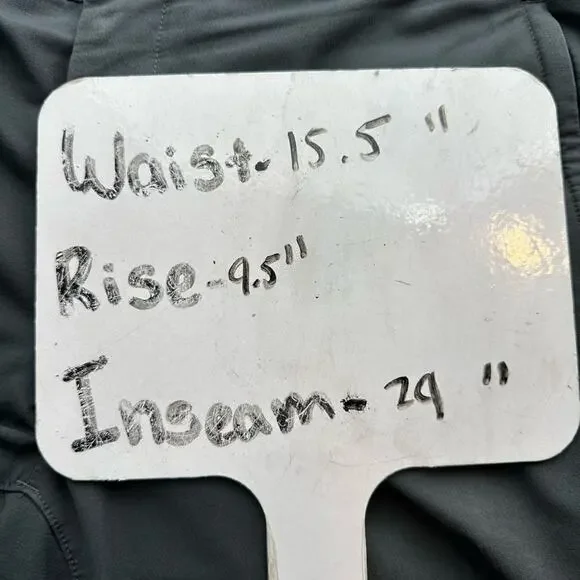 Waist - 15.5 "
Rise - 9.5"
Inseam - 29 "